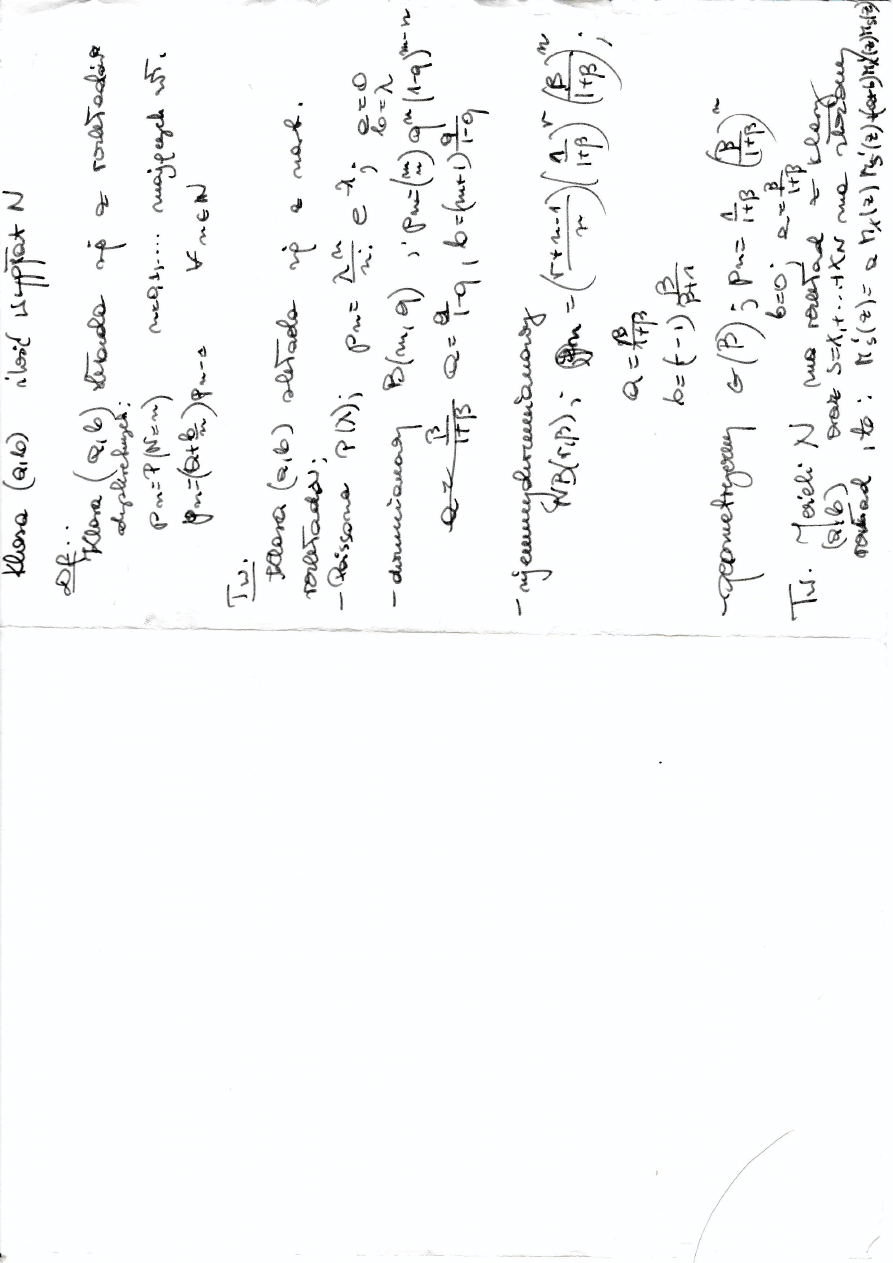 Klasa (a,b) ilość wypłat N
Df...
Klasa (a,b) składa się z rozkładów
dyskretnych:
pn=P(N=n) n=0,1,... mających wł.
pn=(a+b/n)pn-1 ∀ n∈N
Tw.
Klasa (a,b) składa się z nast.
rozkładów:
- Poissona P(λ); pn=λ^n/n! e^-λ; a=0 b=λ
- dwumianowy B(m,q); pn=(m n) q^n (1-q)^m-n
a=-q/1-q, b=(m+1) q/1-q
- ujemny dwumianowy
NB(r,β); pn=(r+n-1 n)(1/1+β)^r (β/1+β)^n;
a=β/1+β
b=(r-1) β/β+1
- geometryczny G(β); pn=1/1+β (β/1+β)^n
b=0; a=β/1+β
Tw. Jeżeli N ma rozkład z klasy
(a,b) oraz S=X1+...+XN ma złożony
rozkład, to: Ms'(z)=a Mx(z) Ms'(z)+(a+b)Mx'(z)Ms(z)